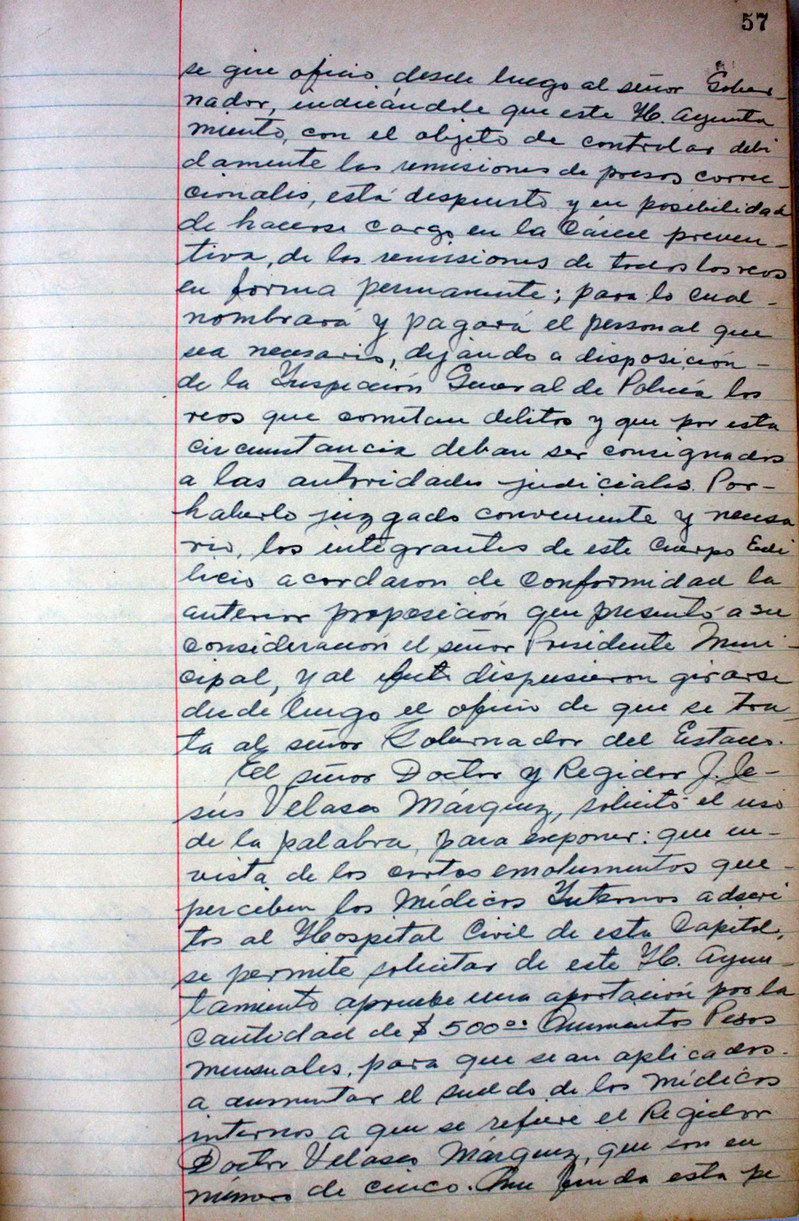 57
se gire oficio desde luego al señor Gober-
nador, indicándole que este H. Ayunta
miento, con el objeto de controlar debi
damente las remisiones de presos correc-
cionales, está dispuesto y en posibilidad
de hacerse cargo en la Cárcel preven-
tiva, de las remisiones de todos los reos
en forma permanente; para lo cual-
nombrará y pagará el personal que
sea necesario, dejando a disposición-
de la Inspección General de Policía los
reos que cometan delitos y que por esta
circunstancia deban ser consignados
a las autoridades judiciales. Por-
haberlo juzgado conveniente y necesa
rio, los integrantes de este Cuerpo Edi
licio acordaron de conformidad la
anterior proposición que presentó a su
consideración el señor Presidente Muni-
cipal, y al efecto dispusieron girarse
desde luego el oficio de que se tra-
ta al señor Gobernador del Estado.
El señor Doctor y Regidor J. Je-
sús Velasco Márquez, solicitó el uso
de la palabra, para exponer: que en-
vista de los cortos emolumentos que-
perciben los Médicos Internos adscri
tos al Hospital Civil de esta Capital,
se permite solicitar de este H. Ayun-
tamiento apruebe una aportación por la
cantidad de $500.00 Quinientos Pesos
mensuales, para que sean aplicados-
a aumentar el sueldo de los médicos
internos a que se refiere el Regidor
Doctor Velasco Márquez, que son en
número de cinco. Que funda esta pe